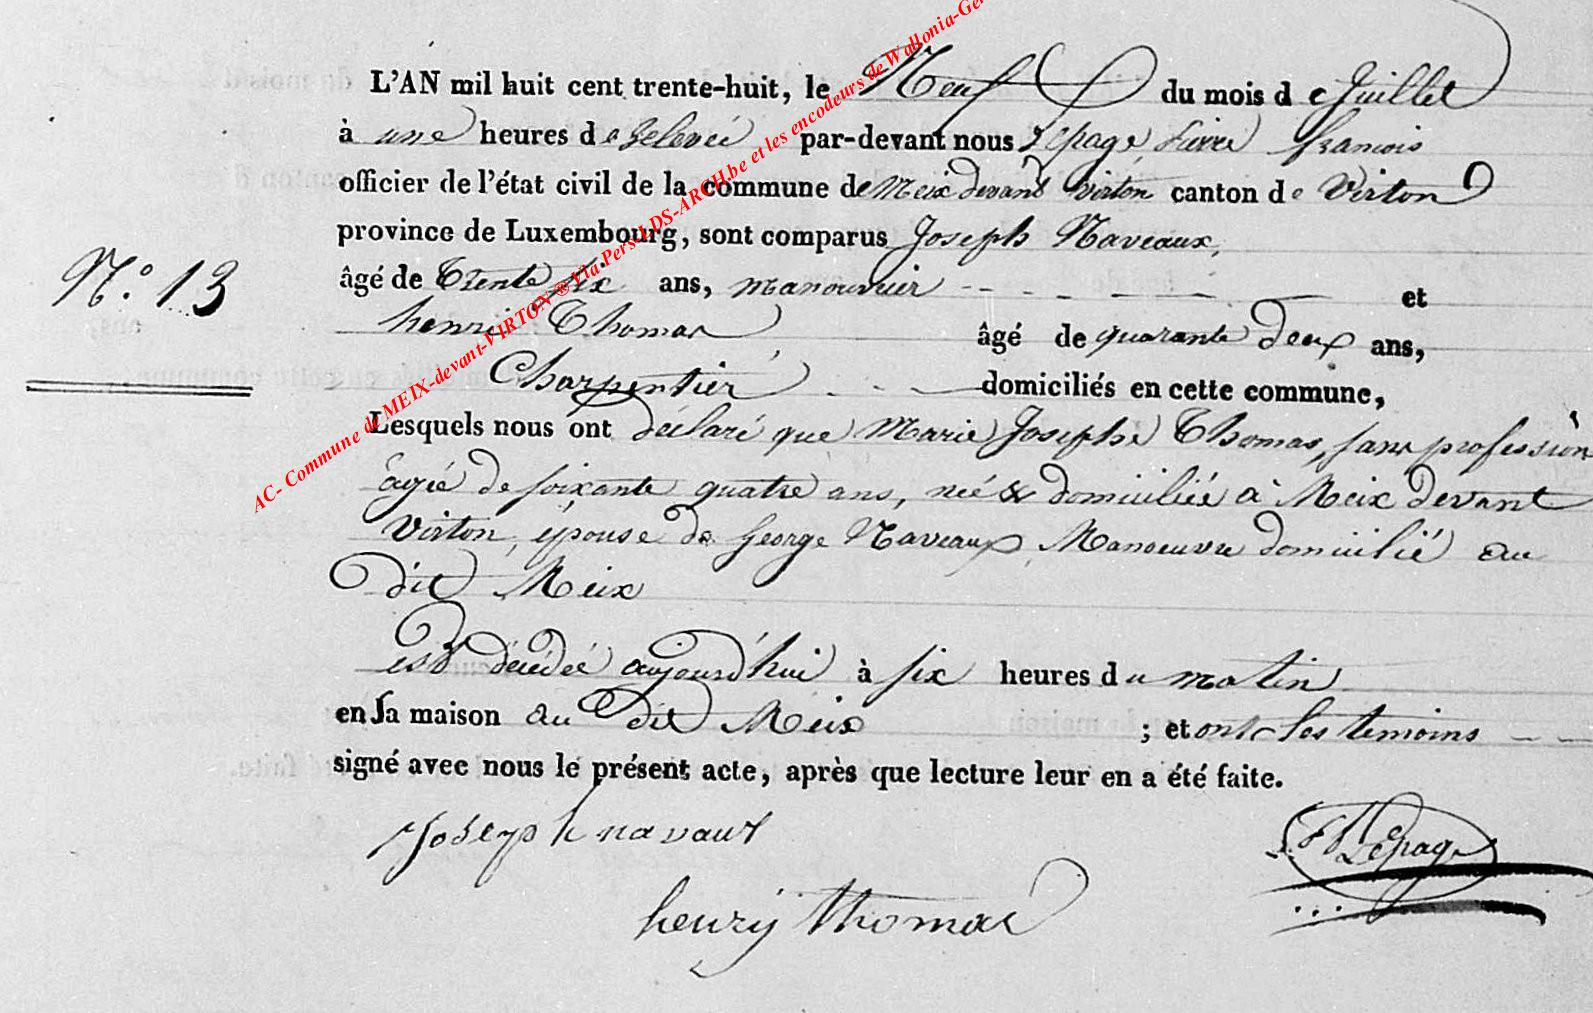 L'AN mil huit cent trente-huit, le Neuf du mois de Juillet
à une heures de Relevée par-devant nous Lepage françois
officier de l'état civil de la commune de Meix devant virton canton de Virton
province de Luxembourg, sont comparus Joseph Naveaux,
âgé de Trente six ans, manouvrier et
N.° 13
henri Thomas âgé de quarante deux ans,
Charpentier domiciliés en cette commune,
Lesquels nous ont déclaré que Marie Josephe Thomas, sans profession
âgée de soixante quatre ans, née & domiciliée à Meix devant
Virton, épouse de George Naveaux, Manoeuvre domicilié au
dit Meix
est décédée aujourd'hui à six heures du matin
en sa maison au dit Meix ; et ont les temoins
signé avec nous le présent acte, après que lecture leur en a été faite.
Joseph navaux
FX Lepage
henry thomas
AC- Commune de MEIX-devant-VIRTON ® Via Pers-LDS-ARCH.be et les encodeurs de Wallonia-Ge